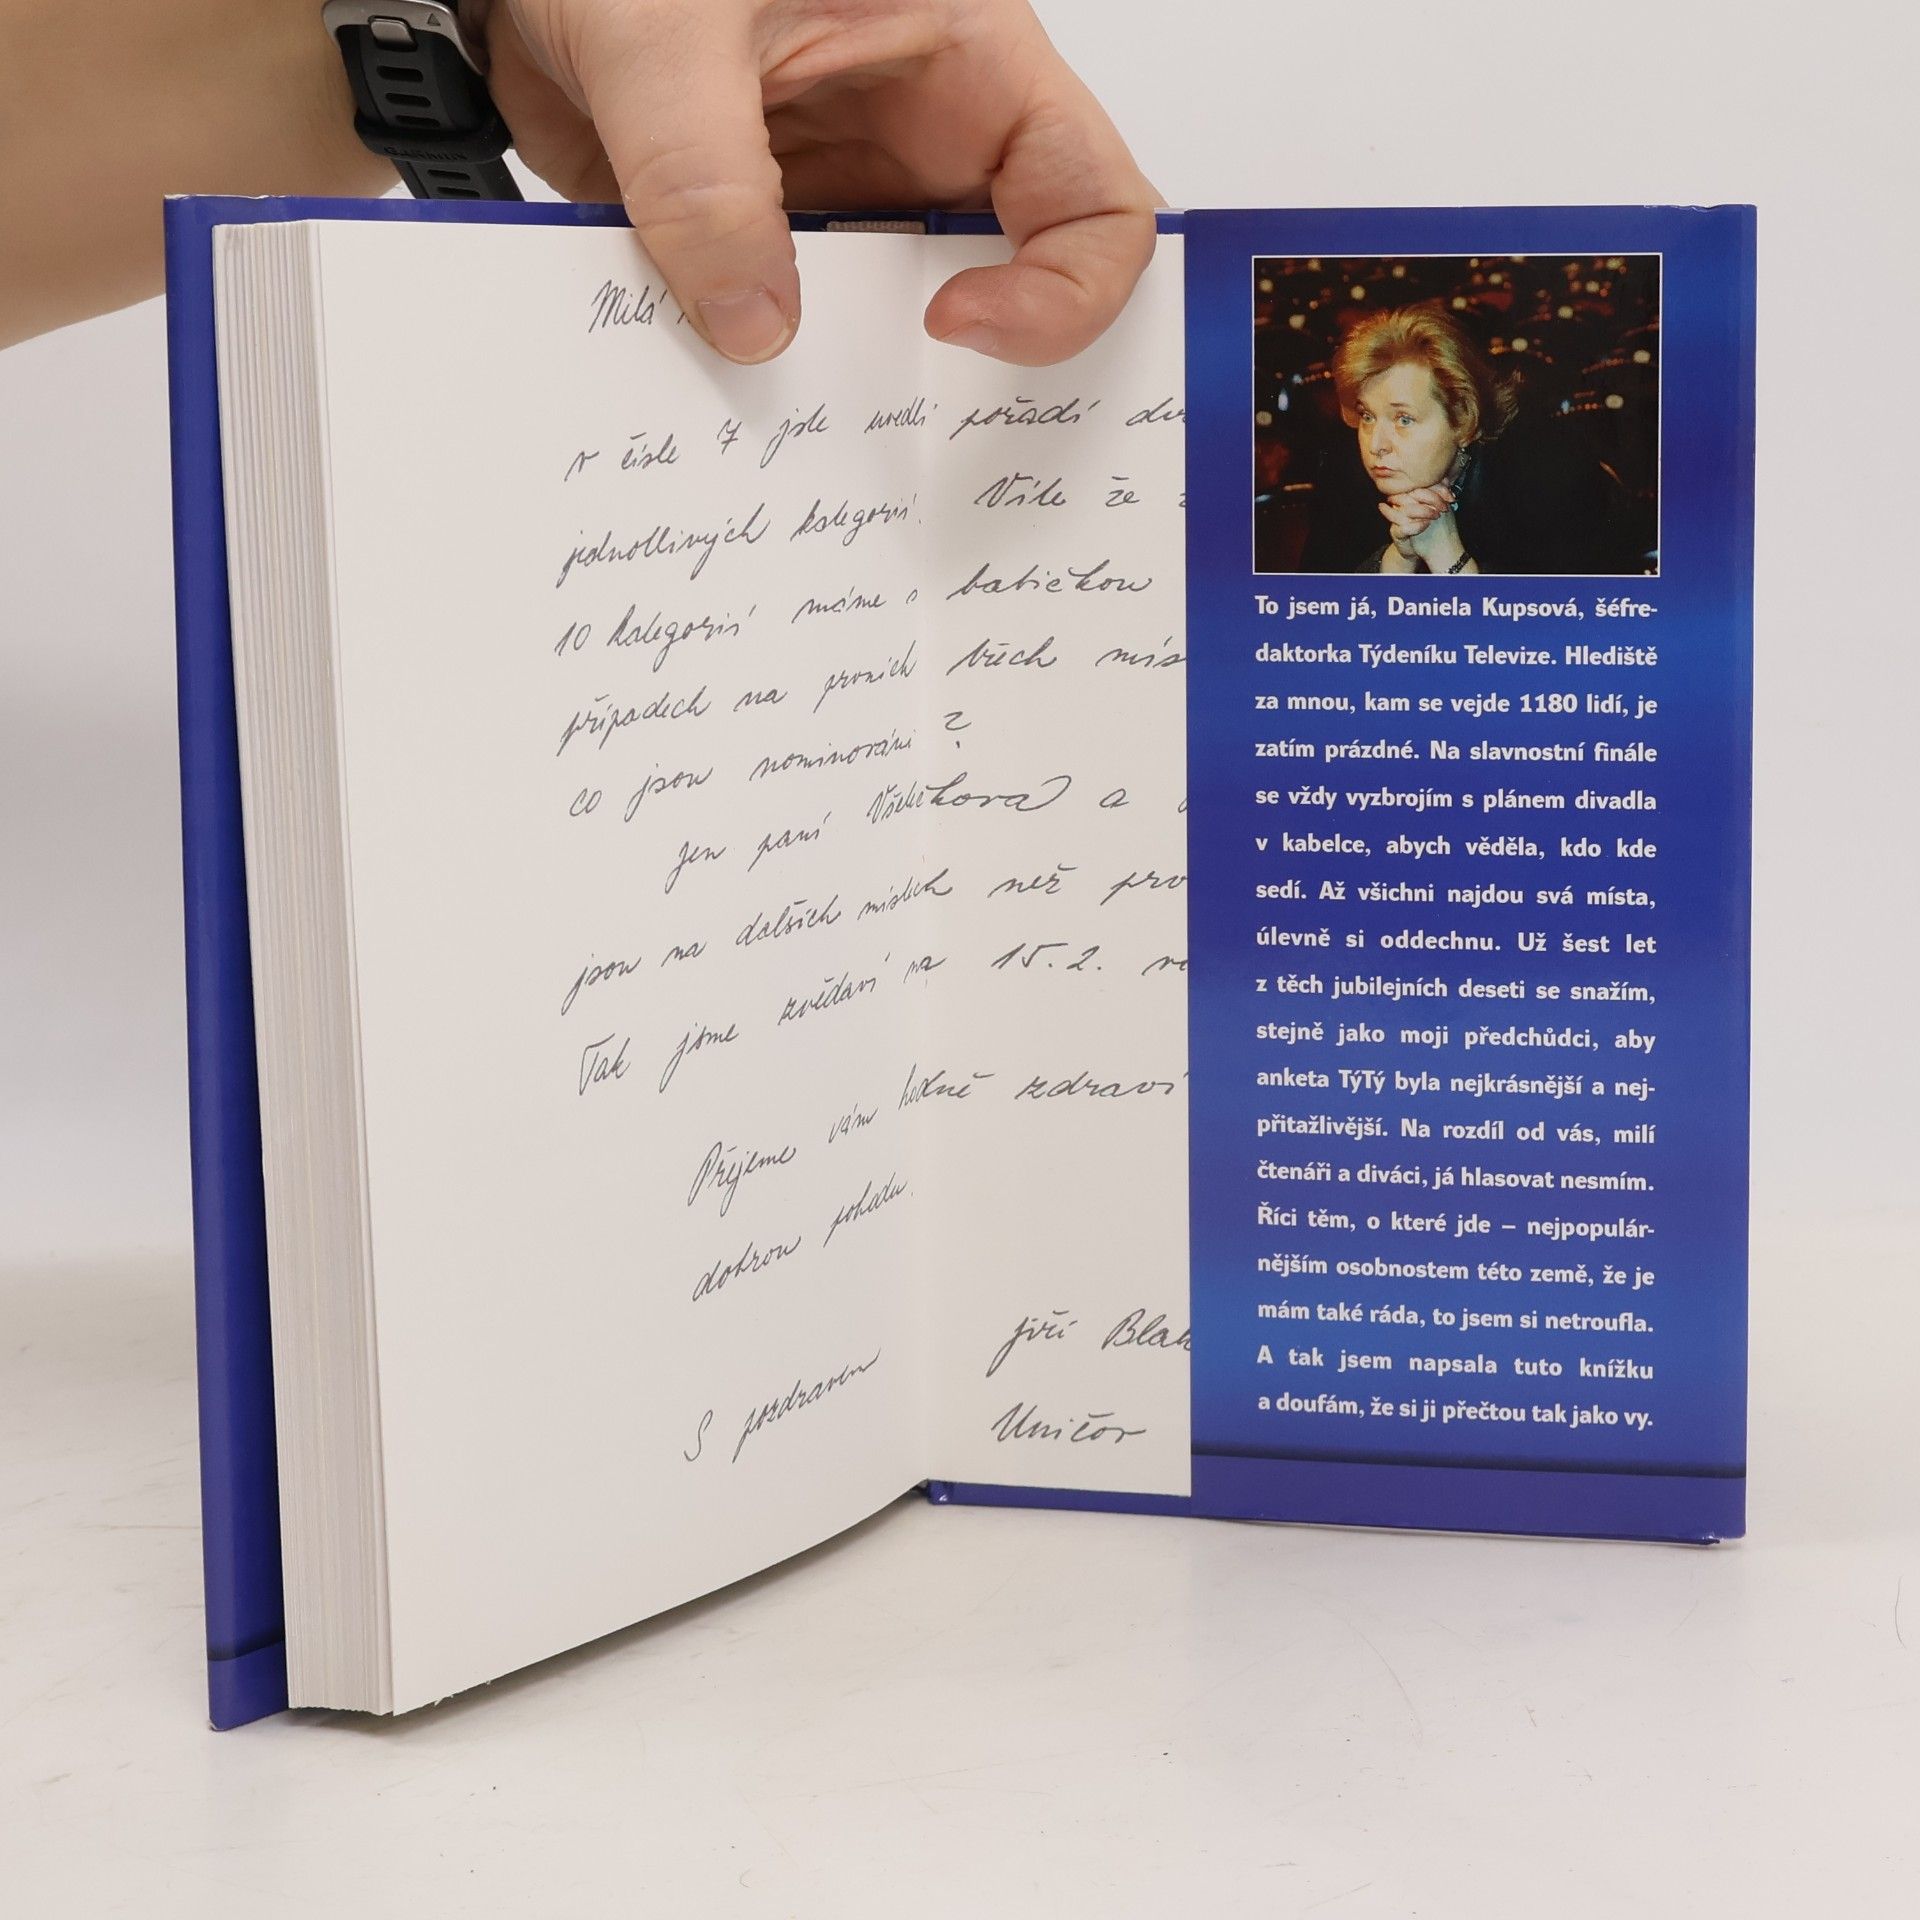 GARMIN
Milá
v čísle 7 jste uvedli pořadí
jednotlivých kategorií. Víte že
10 kategorií máme s babičkou
případech na prvních třech mís
co jsou nominováni ?
Jen paní Všetečkova a
jsou na dalších místech než prv
Tak jsme zvědaví na 15. 2.
Přejeme vám hodně zdraví
dobrou pohodu.
S pozdravem
Jiří Blah
Uničov
To jsem já, Daniela Kupsová, šéfre-
daktorka Týdeníku Televize. Hlediště
za mnou, kam se vejde 1180 lidí, je
zatím prázdné. Na slavnostní finále
se vždy vyzbrojím s plánem divadla
v kabelce, abych věděla, kdo kde
sedí. Až všichni najdou svá místa,
úlevně si oddechnu. Už šest let
z těch jubilejních deseti se snažím,
stejně jako moji předchůdci, aby
anketa TýTý byla nejkrásnější a nej-
přitažlivější. Na rozdíl od vás, milí
čtenáři a diváci, já hlasovat nesmím.
Říci těm, o které jde – nejpopulár-
nějším osobnostem této země, že je
mám také ráda, to jsem si netroufla.
A tak jsem napsala tuto knížku
a doufám, že si ji přečtou tak jako vy.